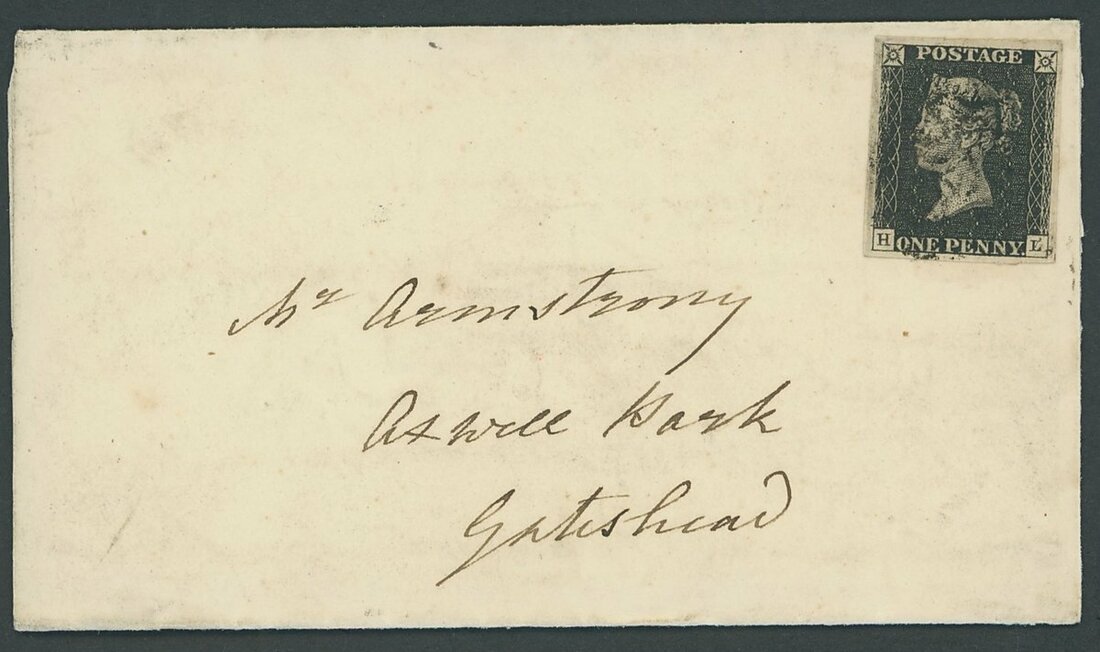 POSTAGE
H ONE PENNY. L
Mr Armstrong
Axwell Park
Gateshead